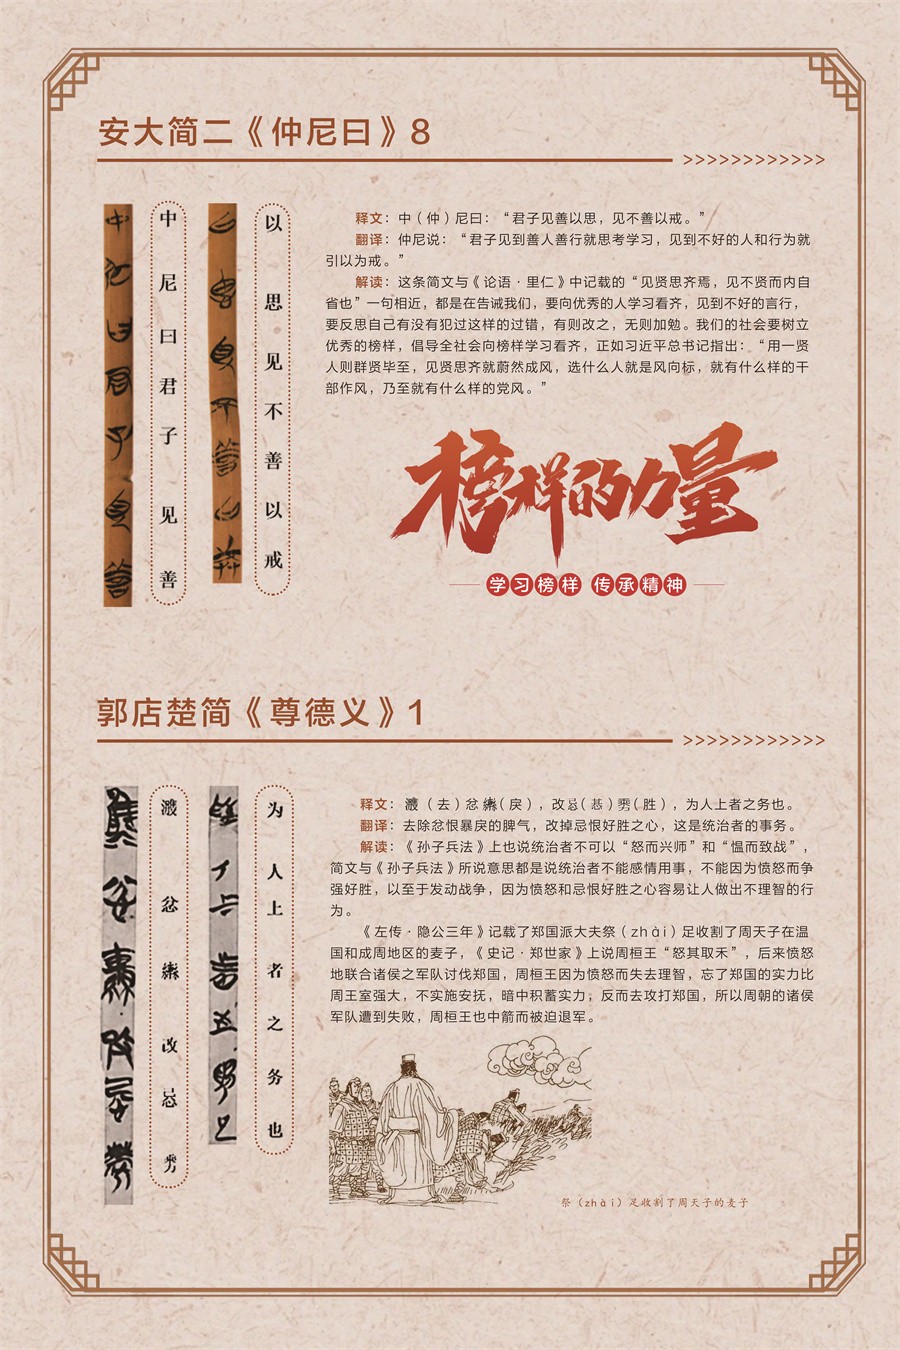 安大简二《仲尼曰》8
>>>>>>>>>>>>
中尼曰君子见善
以思见不善以戒
释文：中（仲）尼曰：“君子见善以思，见不善以戒。”
翻译：仲尼说：“君子见到善人善行就思考学习，见到不好的人和行为就
引以为戒。”
解读：这条简文与《论语·里仁》中记载的“见贤思齐焉，见不贤而内自
省也”一句相近，都是在告诫我们，要向优秀的人学习看齐，见到不好的言行，
要反思自己有没有犯过这样的过错，有则改之，无则加勉。我们的社会要树立
优秀的榜样，倡导全社会向榜样学习看齐，正如习近平总书记指出：“用一贤
人则群贤毕至，见贤思齐就蔚然成风，选什么人就是风向标，就有什么样的干
部作风，乃至就有什么样的党风。”
榜样的力量
学习榜样 传承精神
郭店楚简《尊德义》1
>>>>>>>>>>>>
忿 改
为人上者之务也
释文：（去）忿（戾），改（惎）（胜），为人上者之务也。
翻译：去除忿恨暴戾的脾气，改掉忌恨好胜之心，这是统治者的事务。
解读：《孙子兵法》上也说统治者不可以“怒而兴师”和“愠而致战”，
简文与《孙子兵法》所说意思都是说统治者不能感情用事，不能因为愤怒而争
强好胜，以至于发动战争，因为愤怒和忌恨好胜之心容易让人做出不理智的行
为。
《左传·隐公三年》记载了郑国派大夫祭（zhài）足收割了周天子在温
国和成周地区的麦子，《史记·郑世家》上说周桓王“怒其取禾”，后来愤怒
地联合诸侯之军队讨伐郑国，周桓王因为愤怒而失去理智，忘了郑国的实力比
周王室强大，不实施安抚，暗中积蓄实力，反而去攻打郑国，所以周朝的诸侯
军队遭到失败，周桓王也中箭而被迫退军。
祭（zhài）足收割了周天子的麦子